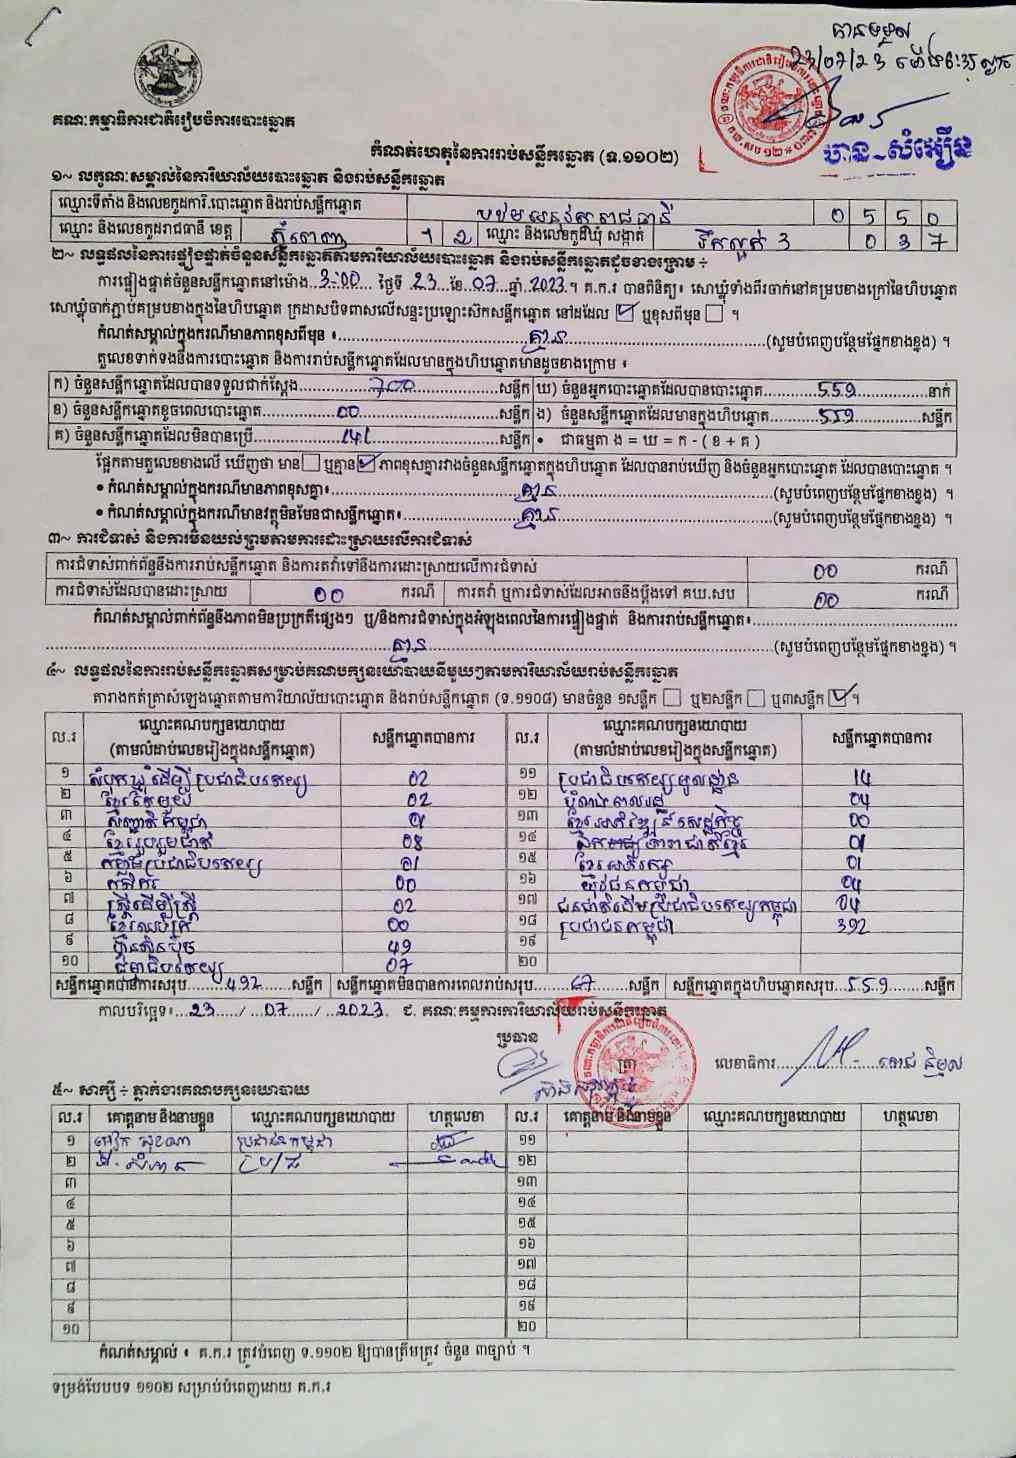 បានទទួល
23/07/23
គណៈកម្មាធិការជាតិរៀបចំការបោះឆ្នោត
បាន-សំអឿន
កំណត់ហេតុនៃការរាប់សន្លឹកឆ្នោត (ទ.១១០២)
១~ លក្ខណៈសម្គាល់នៃការិយាល័យបោះឆ្នោត និងរាប់សន្លឹកឆ្នោត
ឈ្មោះទីតាំង និងលេខកូដការិ.បោះឆ្នោត និងរាប់សន្លឹកឆ្នោត 0 5 5 0
ឈ្មោះ និងលេខកូដរាជធានី ខេត្ត ភ្នំពេញ 1 2 ឈ្មោះ និងលេខកូដឃុំ សង្កាត់ ទឹកល្អក់ 3 0 3 7
២~ លទ្ធផលនៃការផ្ទៀងផ្ទាត់ចំនួនសន្លឹកឆ្នោតតាមការិយាល័យបោះឆ្នោត និងរាប់សន្លឹកឆ្នោតដូចខាងក្រោម ÷
ការផ្ទៀងផ្ទាត់ចំនួនសន្លឹកឆ្នោតនៅម៉ោង 3:00 ថ្ងៃទី 23 ខែ 07 ឆ្នាំ 2023។ គ.ក.រ បានពិនិត្យ៖ សោឃ្លុំទាំងពីរចាក់នៅគម្របខាងក្រៅនៃហិបឆ្នោត
សោឃ្លុំចាក់ភ្ជាប់គម្របខាងក្នុងនៃហិបឆ្នោត ក្រដាសបិទពាសលើសន្ទះប្រឡោះស៊កសន្លឹកឆ្នោត នៅដដែល ☑ ឬខុសពីមុន ☐ ។
កំណត់សម្គាល់ក្នុងករណីមានភាពខុសពីមុន ៖ គ្មាន (សូមបំពេញបន្ថែមផ្នែកខាងខ្នង) ។
តួលេខទាក់ទងនឹងការបោះឆ្នោត និងការរាប់សន្លឹកឆ្នោតដែលមានក្នុងហិបឆ្នោតមានដូចខាងក្រោម ៖
ក) ចំនួនសន្លឹកឆ្នោតដែលបានទទួលជាក់ស្តែង 700 សន្លឹក ឃ) ចំនួនអ្នកបោះឆ្នោតដែលបានបោះឆ្នោត 559 នាក់
ខ) ចំនួនសន្លឹកឆ្នោតខូចពេលបោះឆ្នោត 00 សន្លឹក ង) ចំនួនសន្លឹកឆ្នោតដែលមានក្នុងហិបឆ្នោត 559 សន្លឹក
គ) ចំនួនសន្លឹកឆ្នោតដែលមិនបានប្រើ 141 សន្លឹក • ជាធម្មតា ង = ឃ = ក - ( ខ + គ )
ផ្អែកតាមតួលេខខាងលើ ឃើញថា មាន ☐ ឬគ្មាន ☑ ភាពខុសគ្នារវាងចំនួនសន្លឹកឆ្នោតក្នុងហិបឆ្នោត ដែលបានរាប់ឃើញ និងចំនួនអ្នកបោះឆ្នោត ដែលបានបោះឆ្នោត ។
• កំណត់សម្គាល់ក្នុងករណីមានភាពខុសគ្នា៖ គ្មាន (សូមបំពេញបន្ថែមផ្នែកខាងខ្នង) ។
• កំណត់សម្គាល់ក្នុងករណីមានវត្ថុមិនមែនជាសន្លឹកឆ្នោត៖ គ្មាន (សូមបំពេញបន្ថែមផ្នែកខាងខ្នង) ។
៣~ ការជំទាស់ និងការមិនយល់ព្រមតាមការដោះស្រាយលើការជំទាស់
ការជំទាស់ពាក់ព័ន្ធនឹងការរាប់សន្លឹកឆ្នោត និងការតវ៉ាទៅនឹងការដោះស្រាយលើការជំទាស់ 00 ករណី
ការជំទាស់ដែលបានដោះស្រាយ 00 ករណី ការតវ៉ា ឬការជំទាស់ដែលអាចនឹងប្តឹងទៅ គឃ.សប 00 ករណី
កំណត់សម្គាល់ពាក់ព័ន្ធនឹងភាពមិនប្រក្រតីផ្សេងៗ ឬ/និងការជំទាស់ក្នុងអំឡុងពេលនៃការផ្ទៀងផ្ទាត់ និងការរាប់សន្លឹកឆ្នោត៖
គ្មាន (សូមបំពេញបន្ថែមផ្នែកខាងខ្នង) ។
៤~ លទ្ធផលនៃការរាប់សន្លឹកឆ្នោតសម្រាប់គណបក្សនយោបាយនីមួយៗតាមការិយាល័យរាប់សន្លឹកឆ្នោត
តារាងកត់ត្រាសំឡេងឆ្នោតតាមការិយាល័យបោះឆ្នោត និងរាប់សន្លឹកឆ្នោត (ទ.១១០៨) មានចំនួន ១សន្លឹក ☐ ឬ២សន្លឹក ☐ ឬ៣សន្លឹក ☑ ។
ល.រ ឈ្មោះគណបក្សនយោបាយ (តាមលំដាប់លេខរៀងក្នុងសន្លឹកឆ្នោត) សន្លឹកឆ្នោតបានការ ល.រ ឈ្មោះគណបក្សនយោបាយ (តាមលំដាប់លេខរៀងក្នុងសន្លឹកឆ្នោត) សន្លឹកឆ្នោតបានការ
១ សំបុកឃ្មុំដើម្បីប្រជាធិបតេយ្យ 02 ១១ ប្រជាធិបតេយ្យមូលដ្ឋាន 14
២ ខ្មែរតែមួយ 02 ១២ 04
៣ សញ្ជាតិកម្ពុជា 01 ១៣ ខ្មែរអភិវឌ្ឍន៍សេដ្ឋកិច្ច 00
៤ ខ្មែររួបរួមជាតិ 08 ១៤ ឯកភាពជាតិខ្មែរ 01
៥ កម្លាំងប្រជាធិបតេយ្យ 01 ១៥ ខ្មែរអភិរក្ស 01
៦ កសិករ 00 ១៦ យុវជនកម្ពុជា 04
៧ ស្ត្រីដើម្បីស្ត្រី 02 ១៧ ជនជាតិដើមប្រជាធិបតេយ្យកម្ពុជា 04
៨ ខ្មែរឈប់ក្រ 00 ១៨ ប្រជាជនកម្ពុជា 392
៩ ហ៊្វុនស៊ិនប៉ិច 49 ១៩
១០ ជំនឿប្រជាធិបតេយ្យ 07 ២០
សន្លឹកឆ្នោតបានការសរុប 492 សន្លឹក សន្លឹកឆ្នោតមិនបានការពេលរាប់សរុប 67 សន្លឹក សន្លឹកឆ្នោតក្នុងហិបឆ្នោតសរុប 559 សន្លឹក
កាលបរិច្ឆេទ៖ 23 / 07 / 2023 . ជ. គណៈកម្មការការិយាល័យរាប់សន្លឹកឆ្នោត
ប្រធាន
ត្រា លេខាធិការ
៥~ សាក្សី ÷ ភ្នាក់ងារគណបក្សនយោបាយ
ល.រ គោត្តនាម និងនាមខ្លួន ឈ្មោះគណបក្សនយោបាយ ហត្ថលេខា ល.រ គោត្តនាម និងនាមខ្លួន ឈ្មោះគណបក្សនយោបាយ ហត្ថលេខា
១ ប្រជាជនកម្ពុជា ១១
២ ១២
៣ ១៣
៤ ១៤
៥ ១៥
៦ ១៦
៧ ១៧
៨ ១៨
៩ ១៩
១០ ២០
កំណត់សម្គាល់ ៖ គ.ក.រ ត្រូវបំពេញ ទ.១១០២ ឱ្យបានត្រឹមត្រូវ ចំនួន ៣ច្បាប់ ។
ទម្រង់បែបបទ ១១០២ សម្រាប់បំពេញដោយ គ.ក.រ